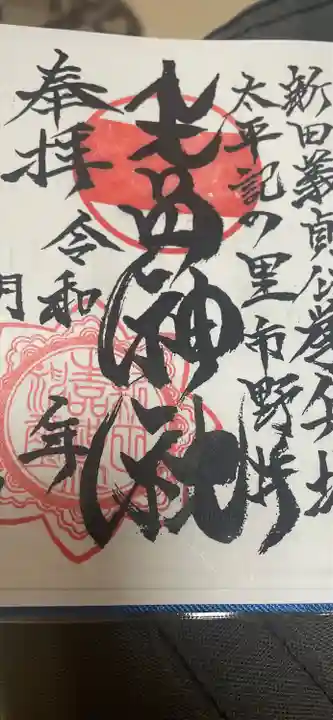 新田義貞公挙兵地
太平記の里市野井
生品神社
奉拝令和 年
月